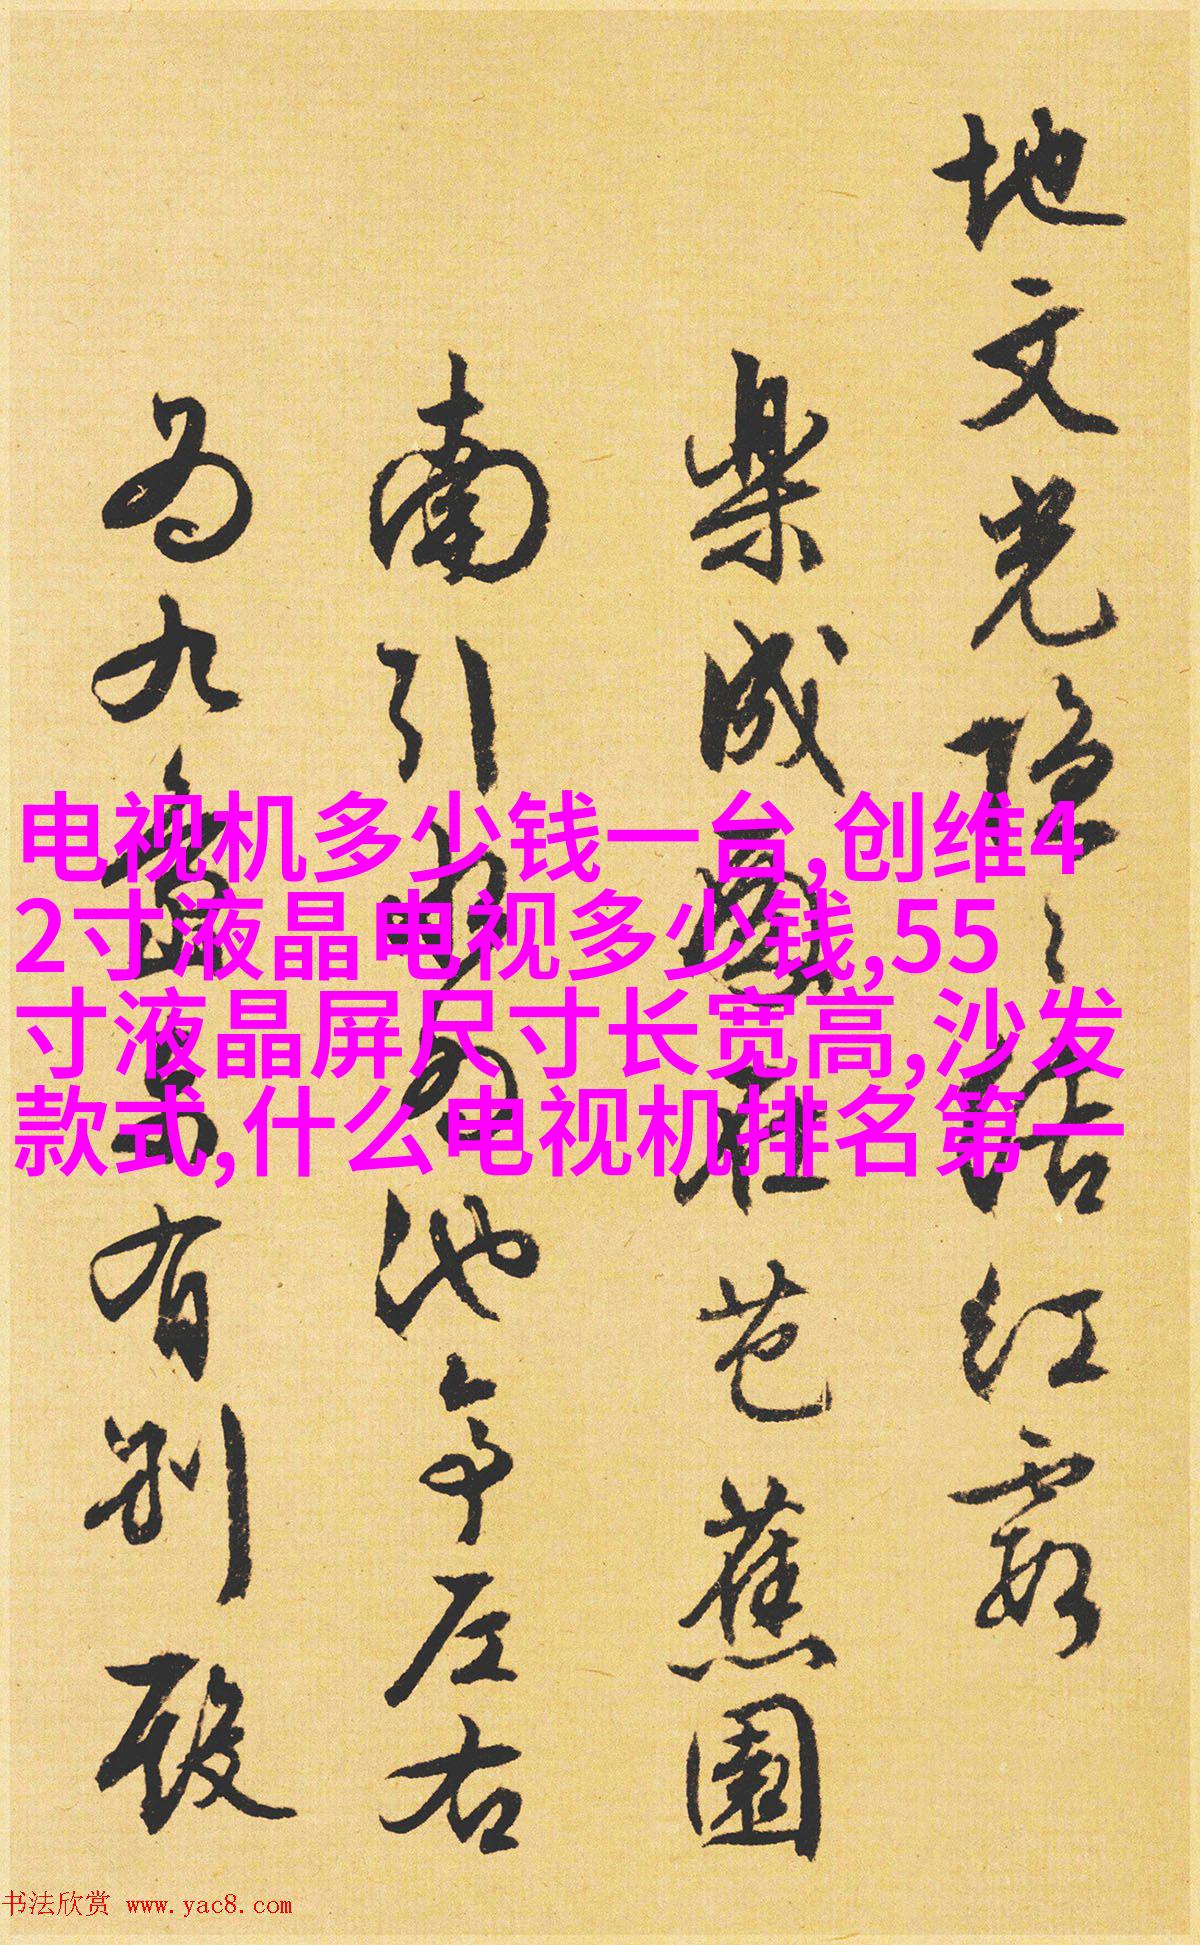 地文光隐〻结红霞
樂成園在芭蕉園
南引内為池亭左右
為九畬堂有别殿
电视机多少钱一台,创维4
2寸液晶电视多少钱,55
寸液晶屏尺寸长宽高,沙发
款式,什么电视机排名第一
书法欣赏 www.yac8.com